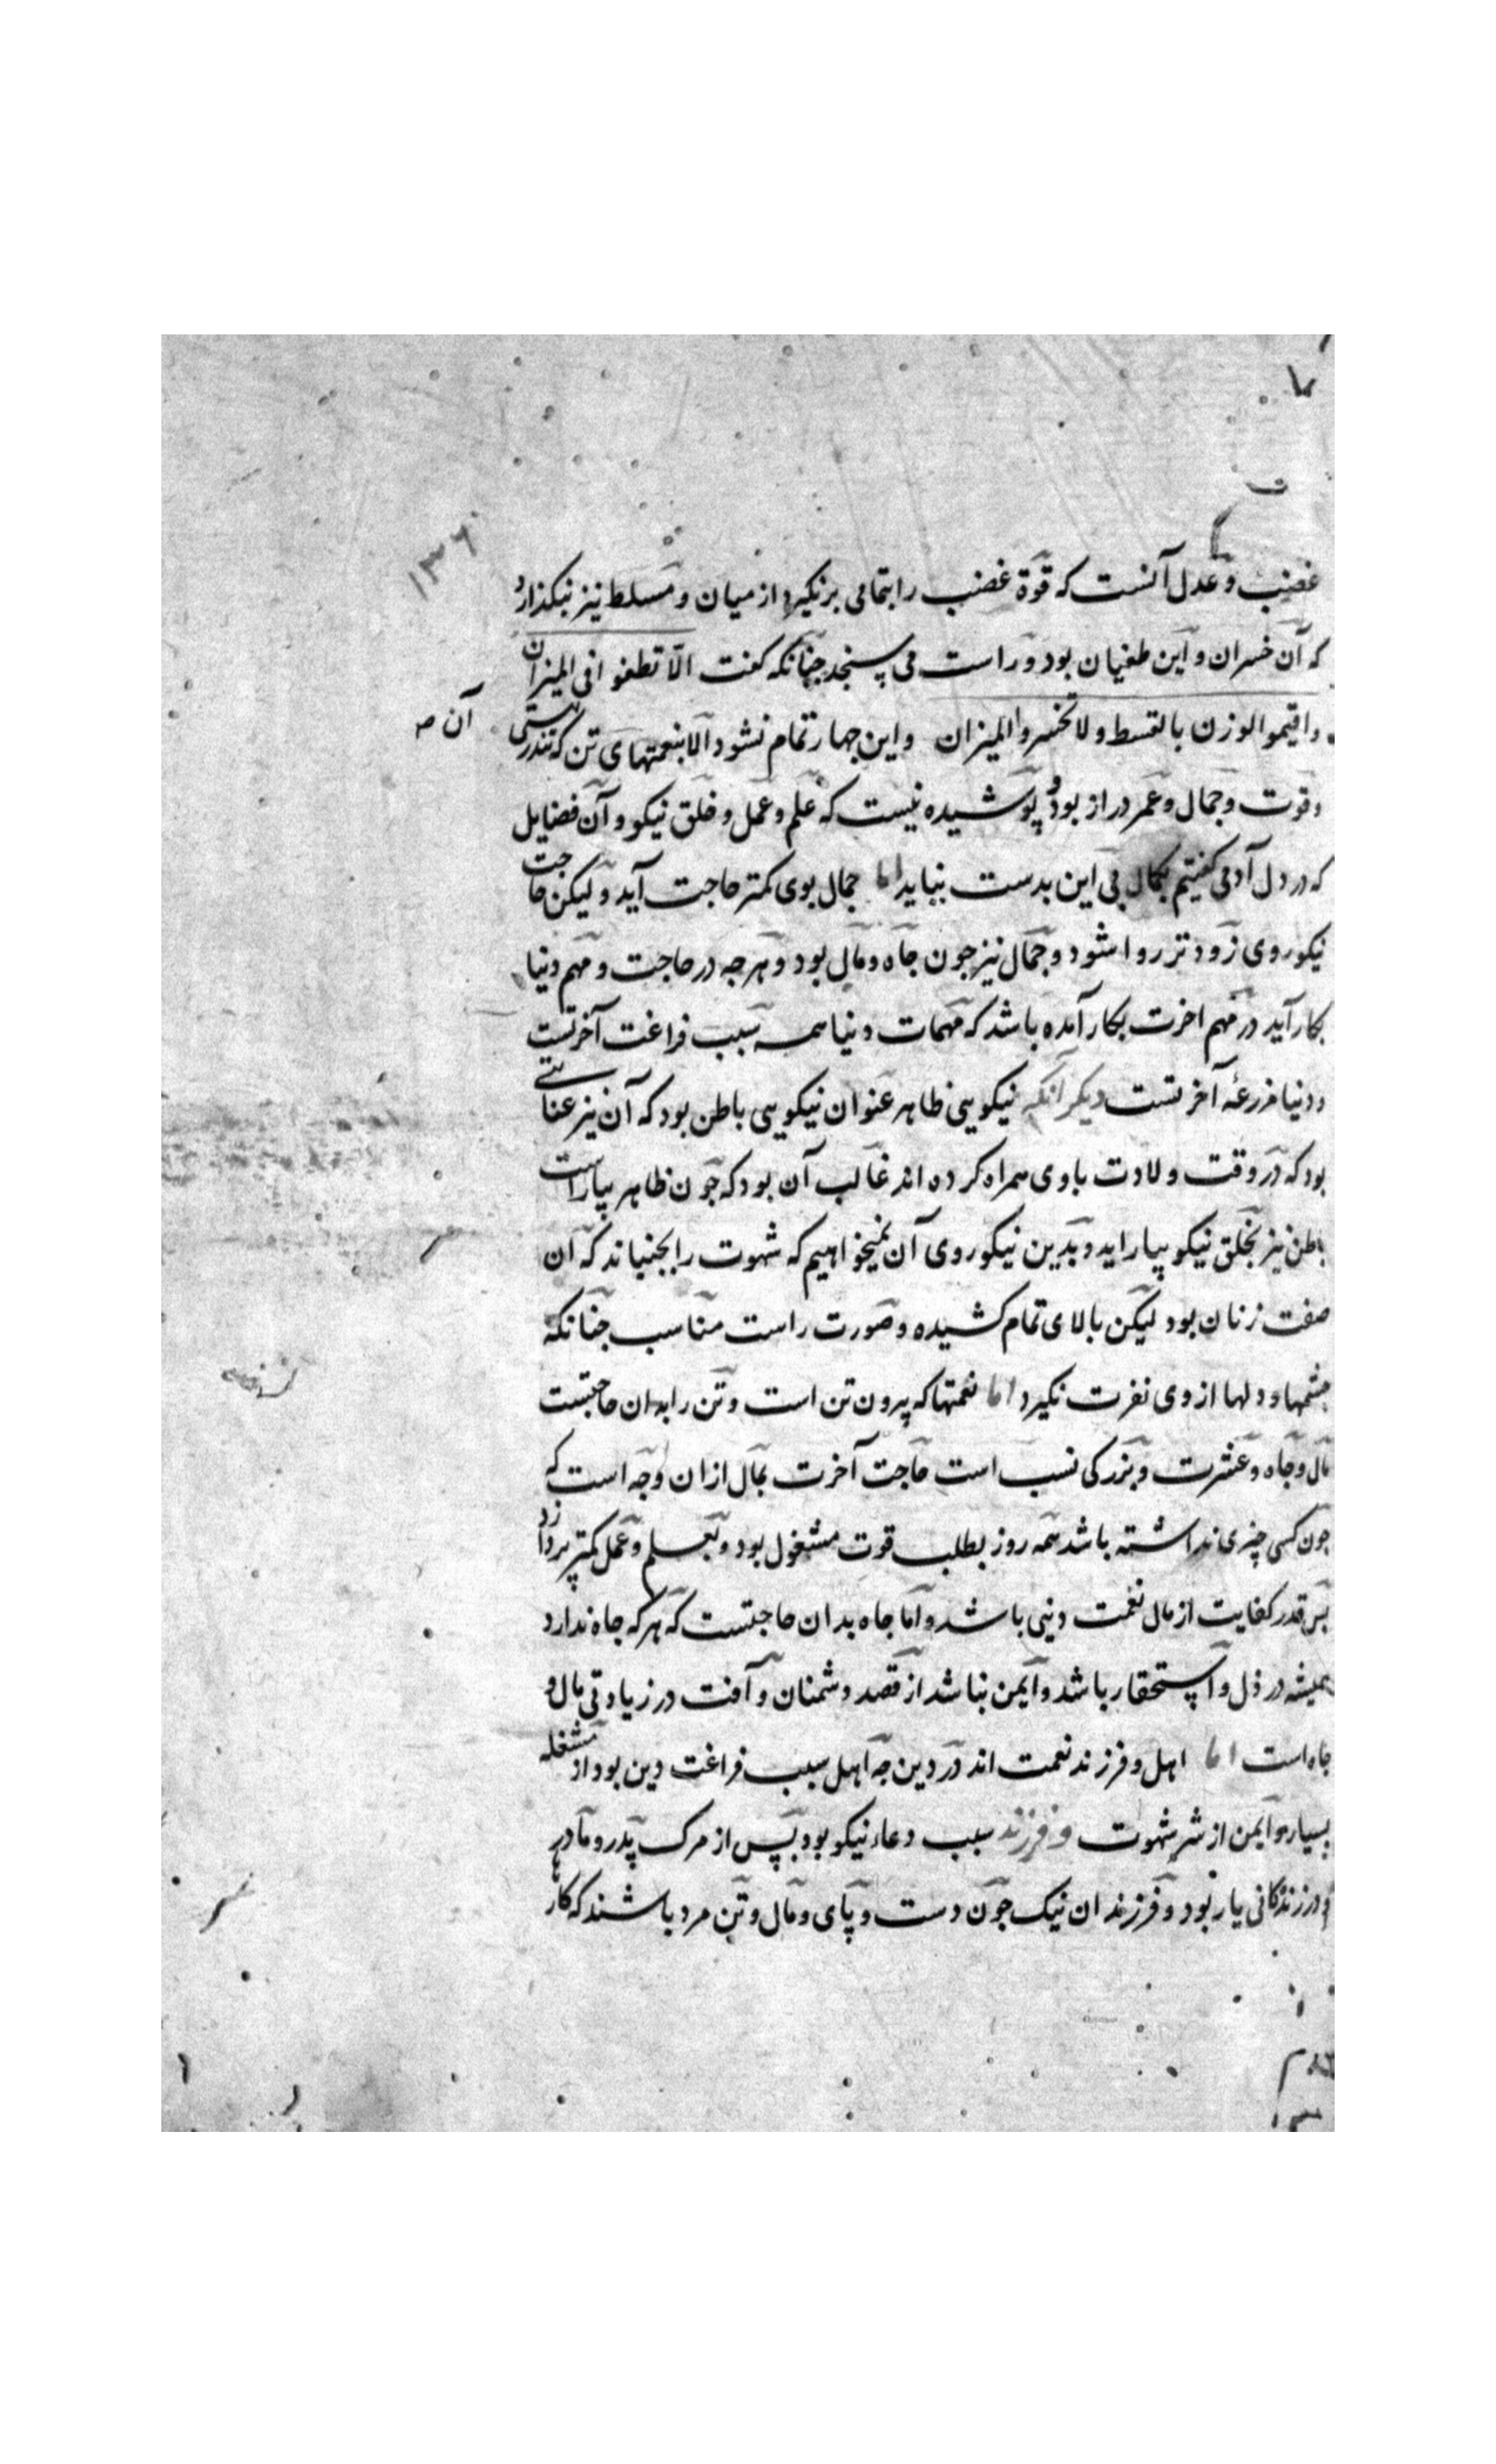 ١٣٦
غضب و عدل آنست که قوّة غضب را بتمامی برنکیرد از میان و مسلط نیز نبکذارد
که آن خسران و این طغیان بود و راست می پسنجد چنانکه کفت الّا تطغوا فی المیزان
واقیموا الوزن بالقسط ولا تخسروا المیزان واین چهار تمام نشود الا بنعمتهای تن که تندرستی
آن صـ
و قوت و جمال و عمر دراز بود و پوشیده نیست که علم و عمل و خلق نیکو و آن فضایل
که در دل آدمی کفتیم بکمال بی این بدست نیاید اما جمال بوی کمتر حاجت آید و لیکن حاجت
نیکو روی زودتر روا شود و جمال نیز جون جاه و مال بود و هرجه در حاجت و مهم دنیا
بکار آید در مهم اخرت بکار آمده باشد که مهمات دنیا همه سبب فراغت آخرتست
و دنیا مزرعهٔ آخرتست دیکر آنکه نیکویی ظاهر عنوان نیکویی باطن بود که آن نیز عنایتی
بود که در وقت ولادت باوی همراه کرده اند غالب آن بود که جون ظاهر بیاراست
باطن نیز بخلق نیکو بیاراید و بدین نیکو روی آن نمیخواهیم که شهوت را بجنباند که ان
صفت زنان بود لیکن بالای تمام کشیده و صورت راست متناسب جنانکه
جشمها و دلها از وی نفرت نکیرد اما نعمتها که بیرون تن است و تن را بدان حاجتست
مال و جاه و عشرت و بزرکی نسب است حاجت آخرت بمال ازان وجه است که
جون کسی چیزی نداشته باشد همه روز بطلب قوت مشغول بود و بعلم و عمل کمتر پردازد
بس قدر کفایت از مال نعمت دینی باشد و اما جاه بدان حاجتست که هرکه جاه ندارد
همیشه در ذل و استحقار باشد و ایمن نباشد از قصد دشمنان و آفت در زیادتی مال و
جاه است اما اهل و فرزند نعمت اند در دین جه اهل سبب فراغت دین بود از مشغله
بسیار و ایمن از شر شهوت و فرزند سبب دعاء نیکو بود بپس از مرک پدر و مادر
و در زندکانی یار بود و فرزندان نیک جون دست و پای و مال و تن مرد باشند که کار